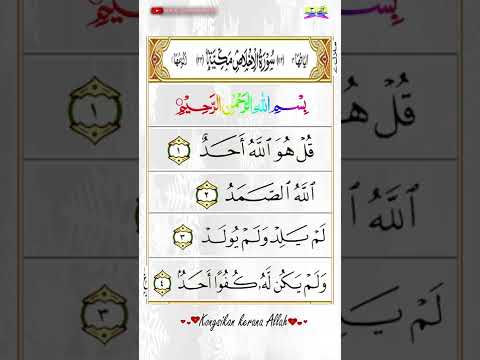 سُورَةُ الْإِخْلَاصِ مَكِّيَّةٌ
بِسْمِ اللهِ الرَّحْمٰنِ الرَّحِيْمِ
قُلْ هُوَ ٱللَّهُ أَحَدٌ ١
ٱللَّهُ ٱلصَّمَدُ ٢
لَمْ يَلِدْ وَلَمْ يُولَدْ ٣
وَلَمْ يَكُن لَّهُۥ كُفُوًا أَحَدٌۢ ٤
Kongsikan kerana Allah